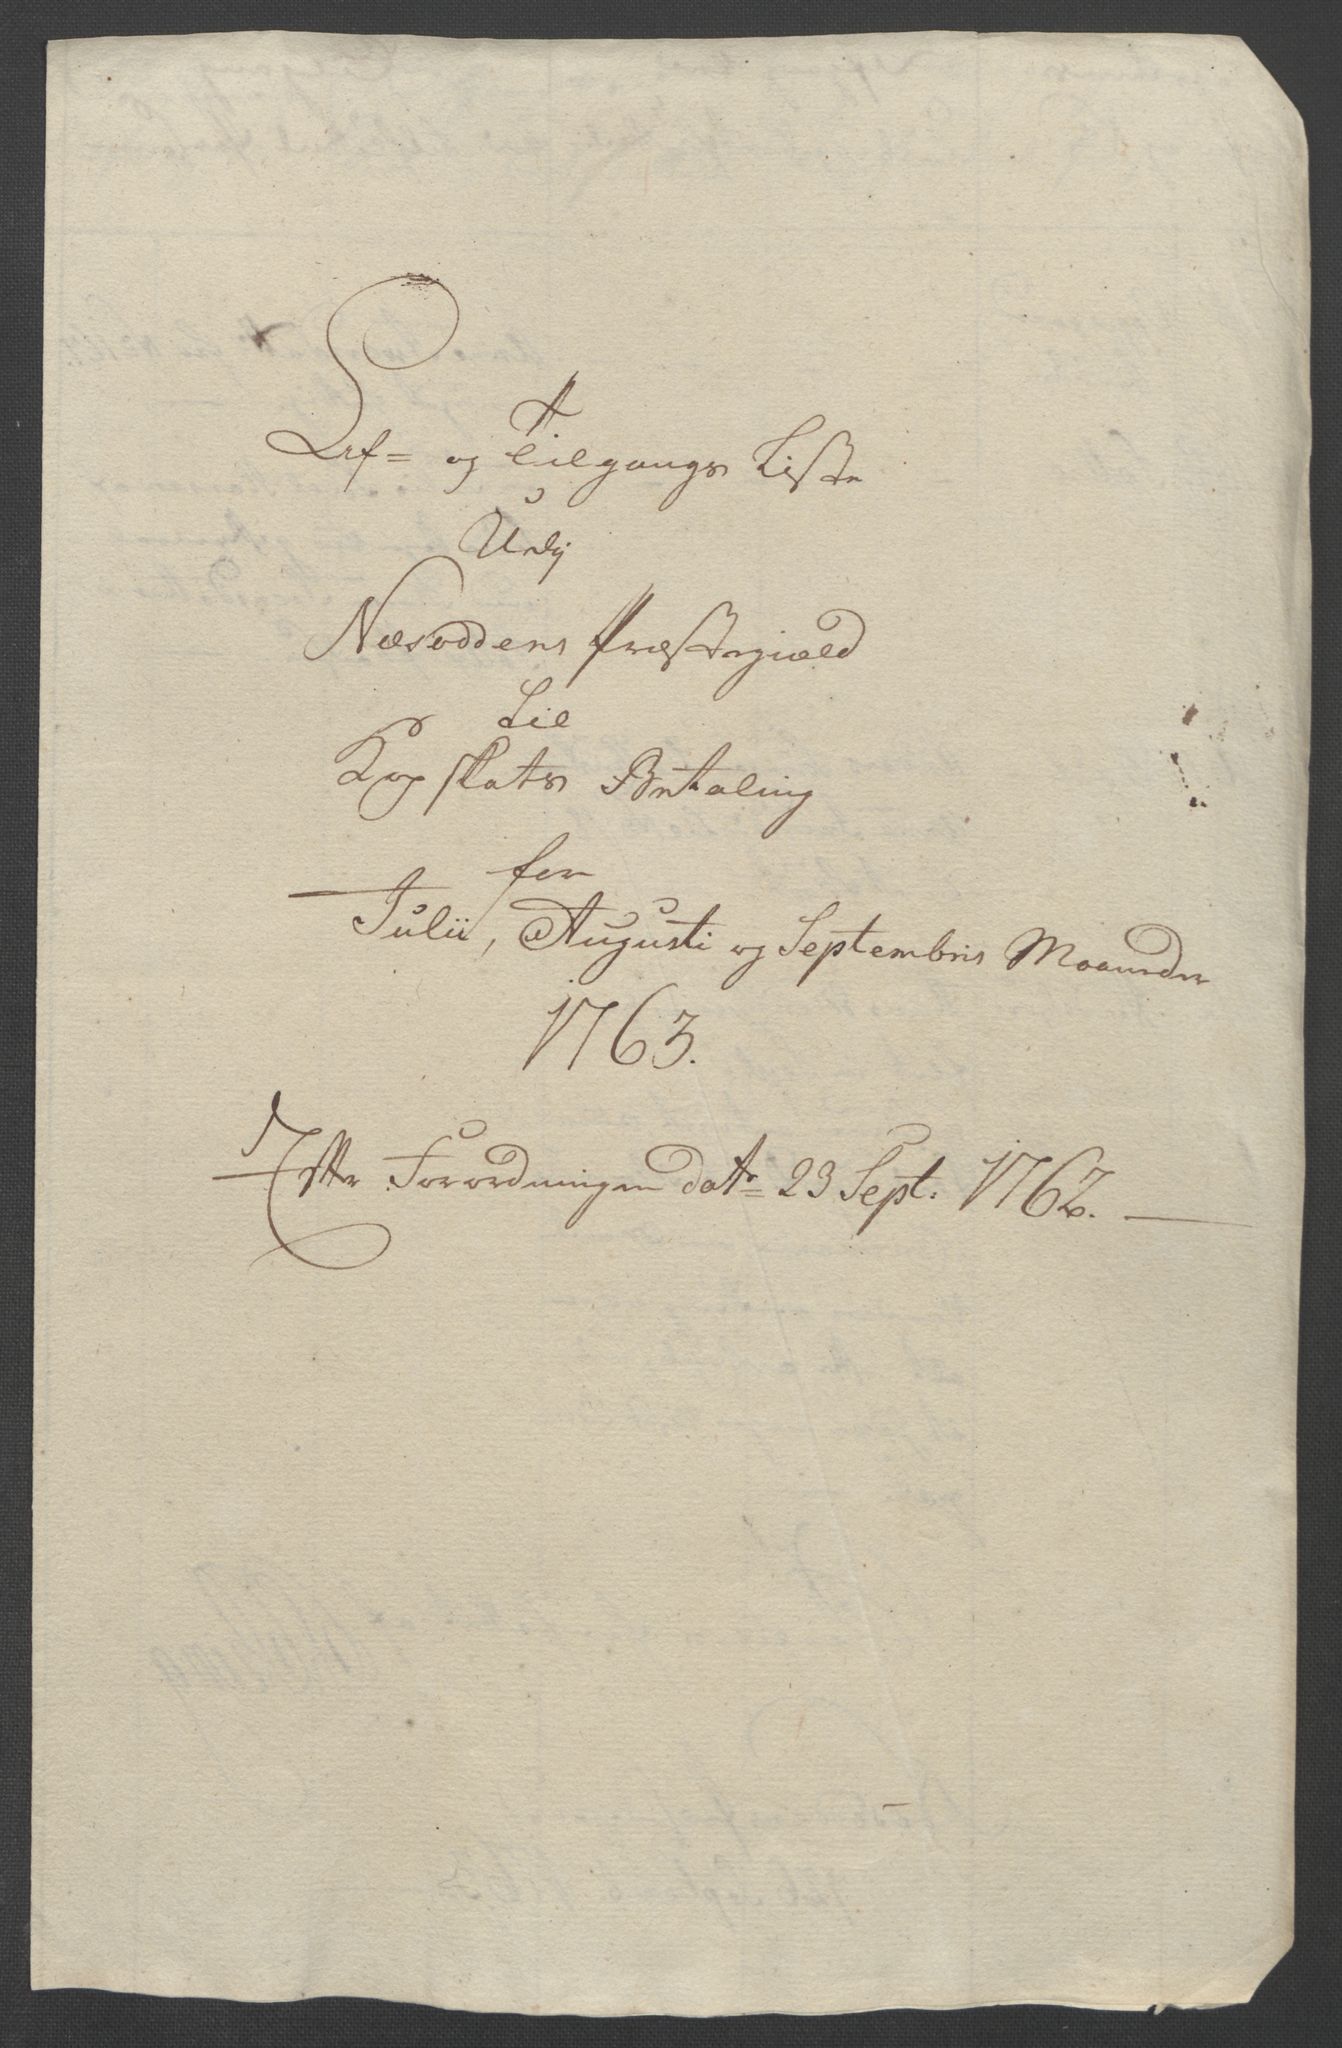 Af= og Tilgangs Liste
Udj
Næsoddens Præstegiæld
Til
Kopskats Betaling
for
Julii, Augusti og Septembris Maaneder
1763.
Efter Forordningen dat= 23 Sept. 1762.